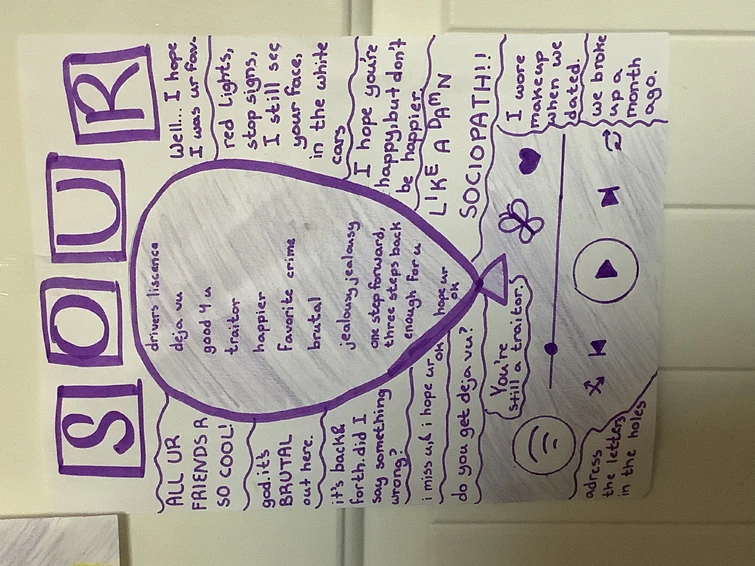 SOUR
ALL UR
FRIENDS R
SO COOL!
god, it's
BRUTAL
out here.
it's back &
forth, did I
say something
wrong?
i miss u, & i hope ur ok
do you get deja vu?
drivers liscence
deja vu
good 4 u
traitor
happier
favorite crime
brutal
jealousy, jealousy
one stop forward,
three steps back
enough for u
hope ur
ok
Well... I hope
I was ur fav.
red lights,
stop signs,
I still see
your face,
in the white
cars
I hope you're
happy, but don't
be happier.
LIKE A DAMN
SOCIOPATH!!
You're
still a traitor.
I wore
makeup
when we
dated.
we broke
up a
month
ago.
adress
the letters
in the holes